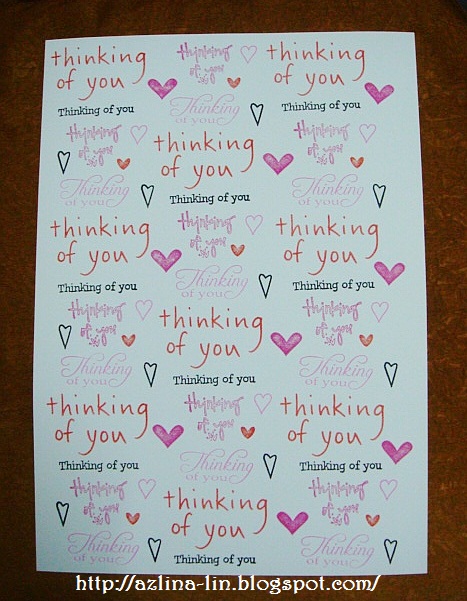 thinking
of you
Thinking of you
thinking
of you
Thinking
of you
thinking
of you
Thinking of you
thinking
of you
Thinking
of you
thinking
of you
Thinking of you
thinking
of you
Thinking
of you
thinking
of you
Thinking of you
thinking
of you
Thinking
of you
thinking
of you
Thinking of you
thinking
of you
Thinking
of you
thinking
of you
Thinking of you
thinking
of you
Thinking
of you
thinking
of you
Thinking of you
thinking
of you
Thinking
of you
thinking
of you
Thinking of you
thinking
of you
Thinking
of you
thinking
of you
Thinking of you
thinking
of you
Thinking
of you
http://azlina-lin.blogspot.com/